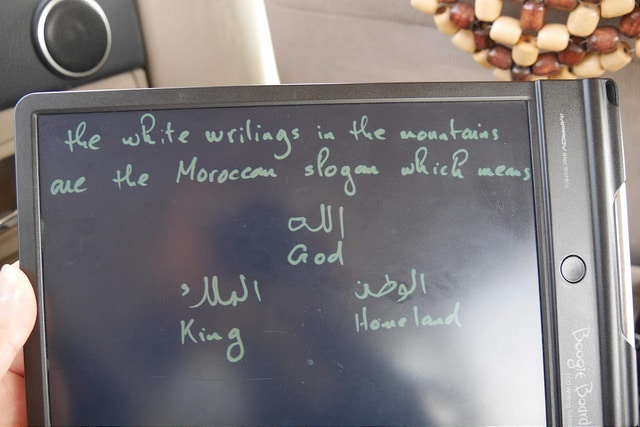 the white writings in the mountains
are the Moroccan slogan which means
الله
God
الملك الوطن
King Homeland
Boogie Board